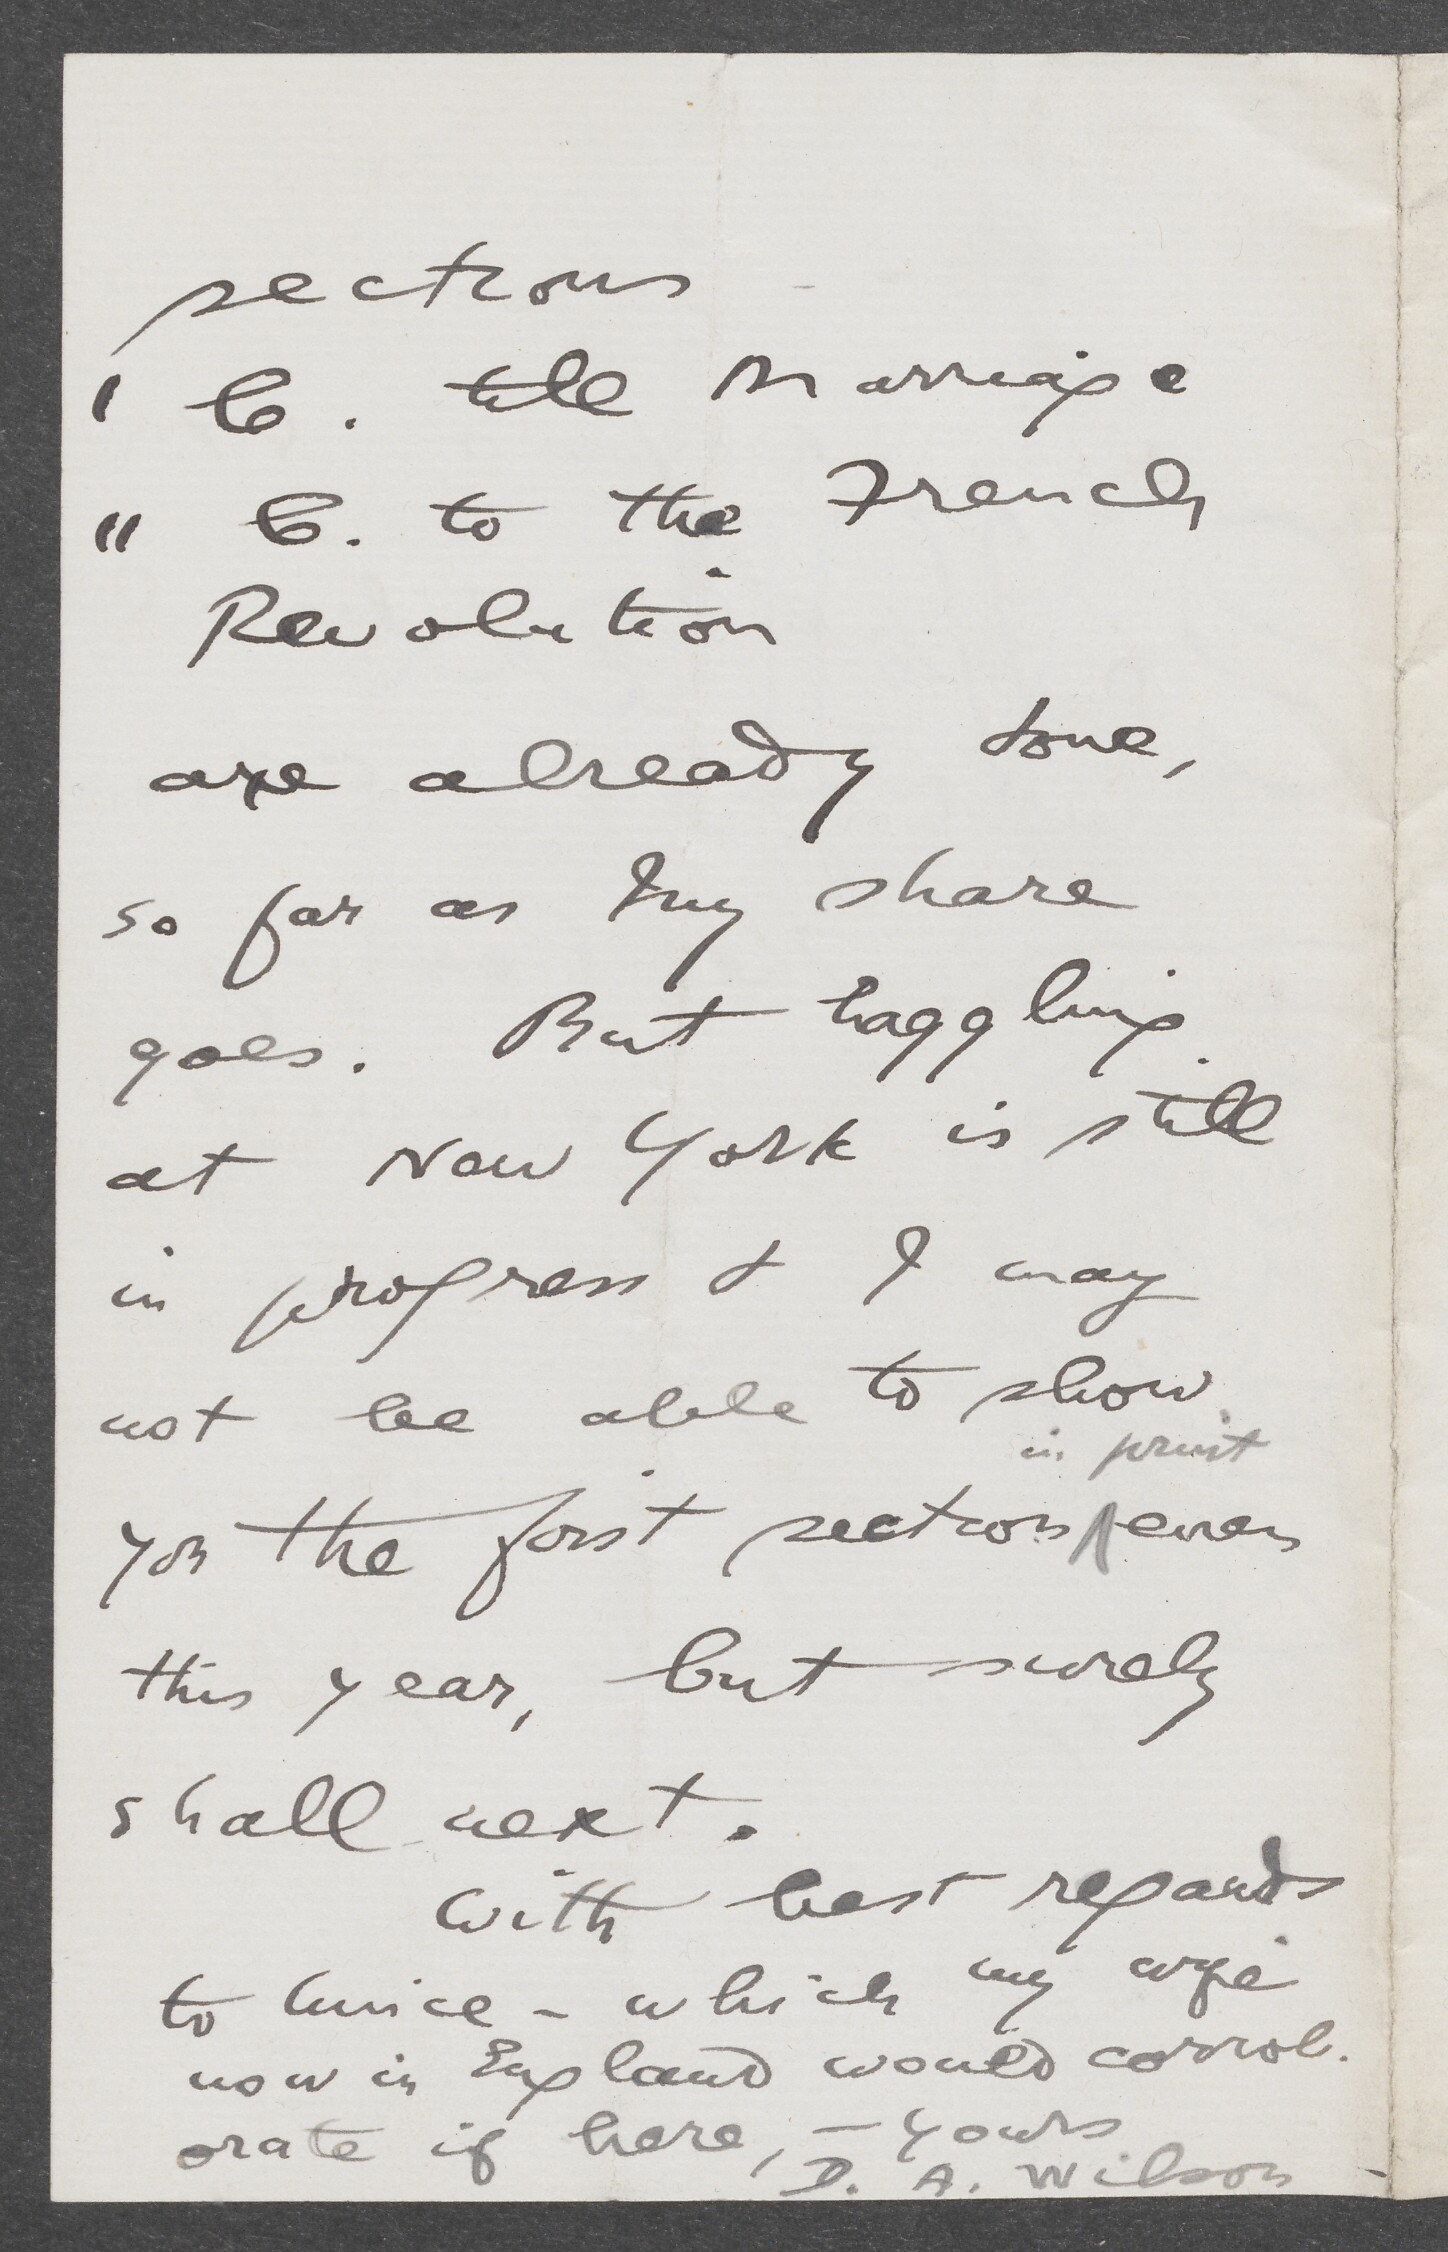 sections
' C. till Marriage
" C. to the French
Revolution
are already done,
so far as my share
goes. But haggling
at New York is still
in progress & I may
not be able to show
in print
you the first section ∧ even
this year, but surely
shall next.
With best regards
to  – which my wife
now in England would corrob-
orate if here, – yours
D. A. Wilson